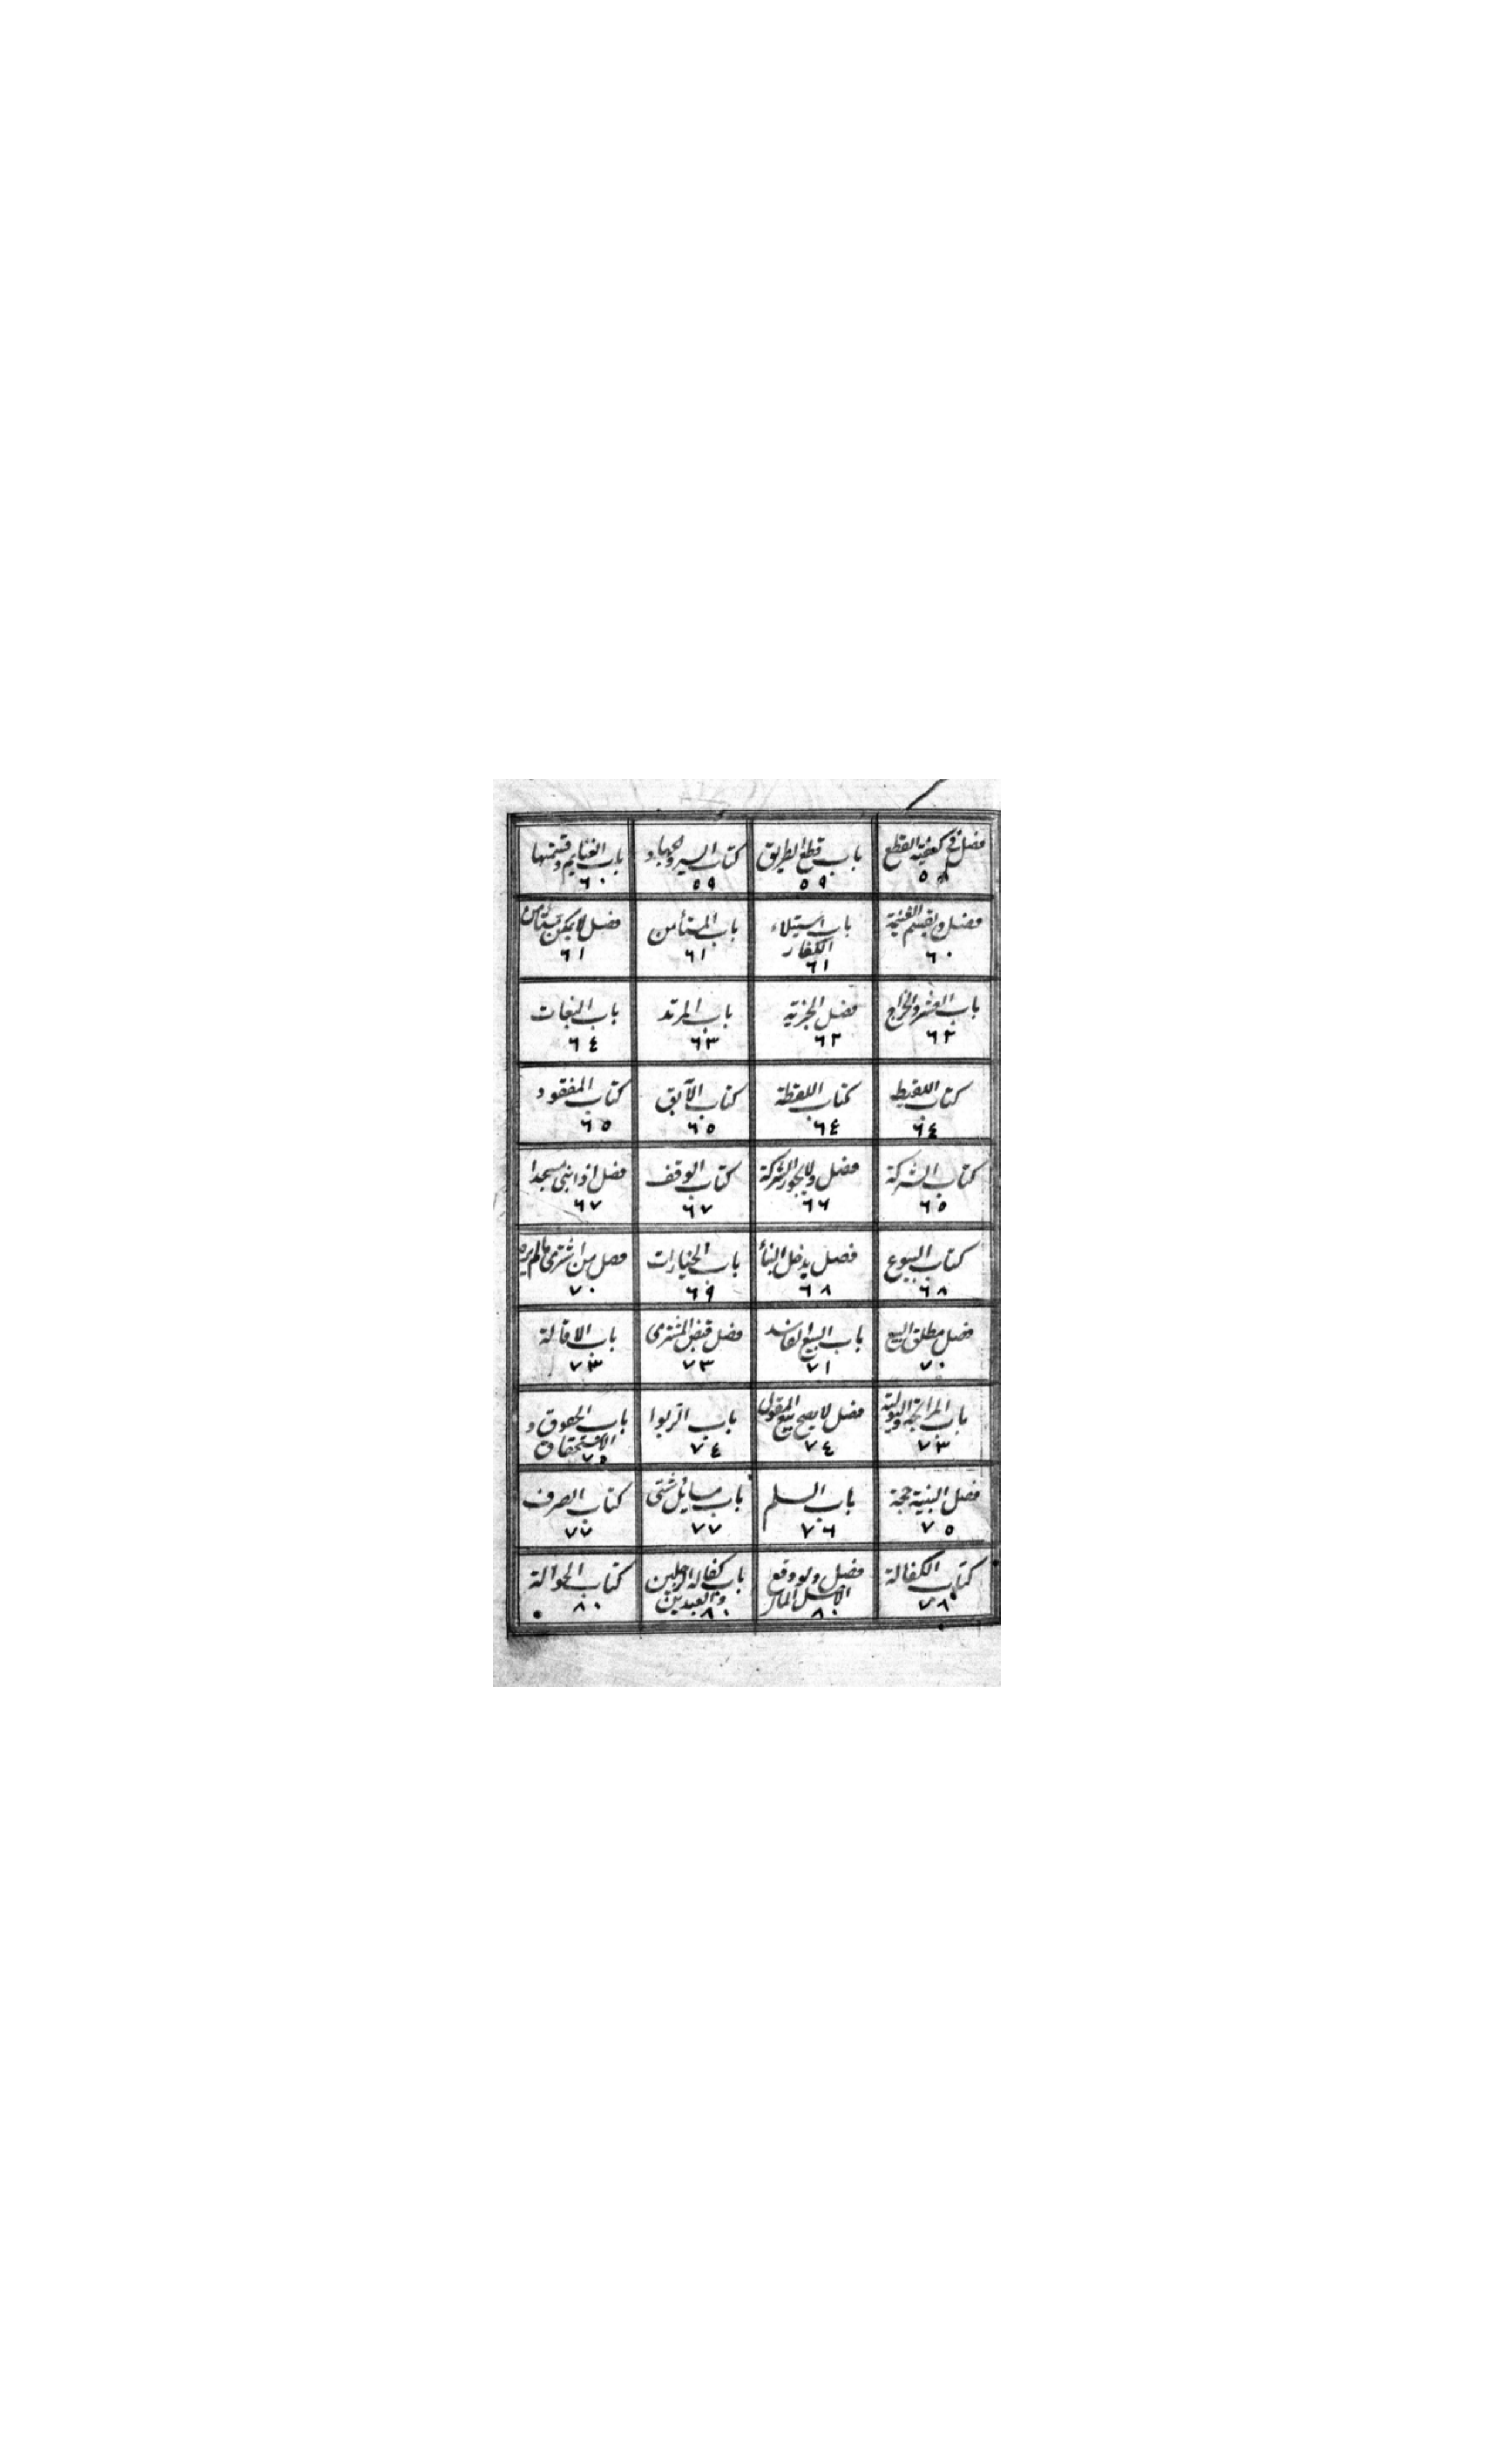 فصل في كيفية القطع
٥٨
باب قطع الطريق
٥٩
كتاب السير والجهاد
٥٩
باب الغنايم وقسمتها
٦٠
فصل ويقسم الغنيمة
٦٠
باب استيلاء
الكفار
٦١
باب المستأمن
٦١
فصل لا يمكن مستأمن
٦١
باب العشر والخراج
٦٢
فصل الجزية
٦٢
باب المرتد
٦٣
باب البغات
٦٤
كتاب اللقيط
٦٤
كتاب اللقطة
٦٤
كتاب الآبق
٦٥
كتاب المفقود
٦٥
كتاب الشركة
٦٥
فصل ولا يجوز الشركة
٦٦
كتاب الوقف
٦٧
فصل اذا بنى مسجدا
٦٧
كتاب البيوع
٦٨
فصل يدخل البنأ
٦٨
باب الخيارات
٦٩
فصل من اشترى مالم يره
٧٠
فصل مطلق البيع
٧٠
باب البيع الفاسد
٧١
فصل قبض المشترى
٧٣
باب الاقالة
٧٣
باب المرابحة والتولية
٧٣
فصل لا يصح بيع المنقول
٧٤
باب الربوا
٧٤
باب الحقوق و
الاستحقاق
٧٥
فصل البينة حجة
٧٥
باب السلم
٧٦
باب مسائل شتى
٧٧
كتاب الصرف
٧٧
كتاب الكفالة
٧٨
فصل ولو دفع
الاصيل المال
٨٠
باب كفالة الرجلين
والعبدين
٨٠
كتاب الحوالة
٨٠